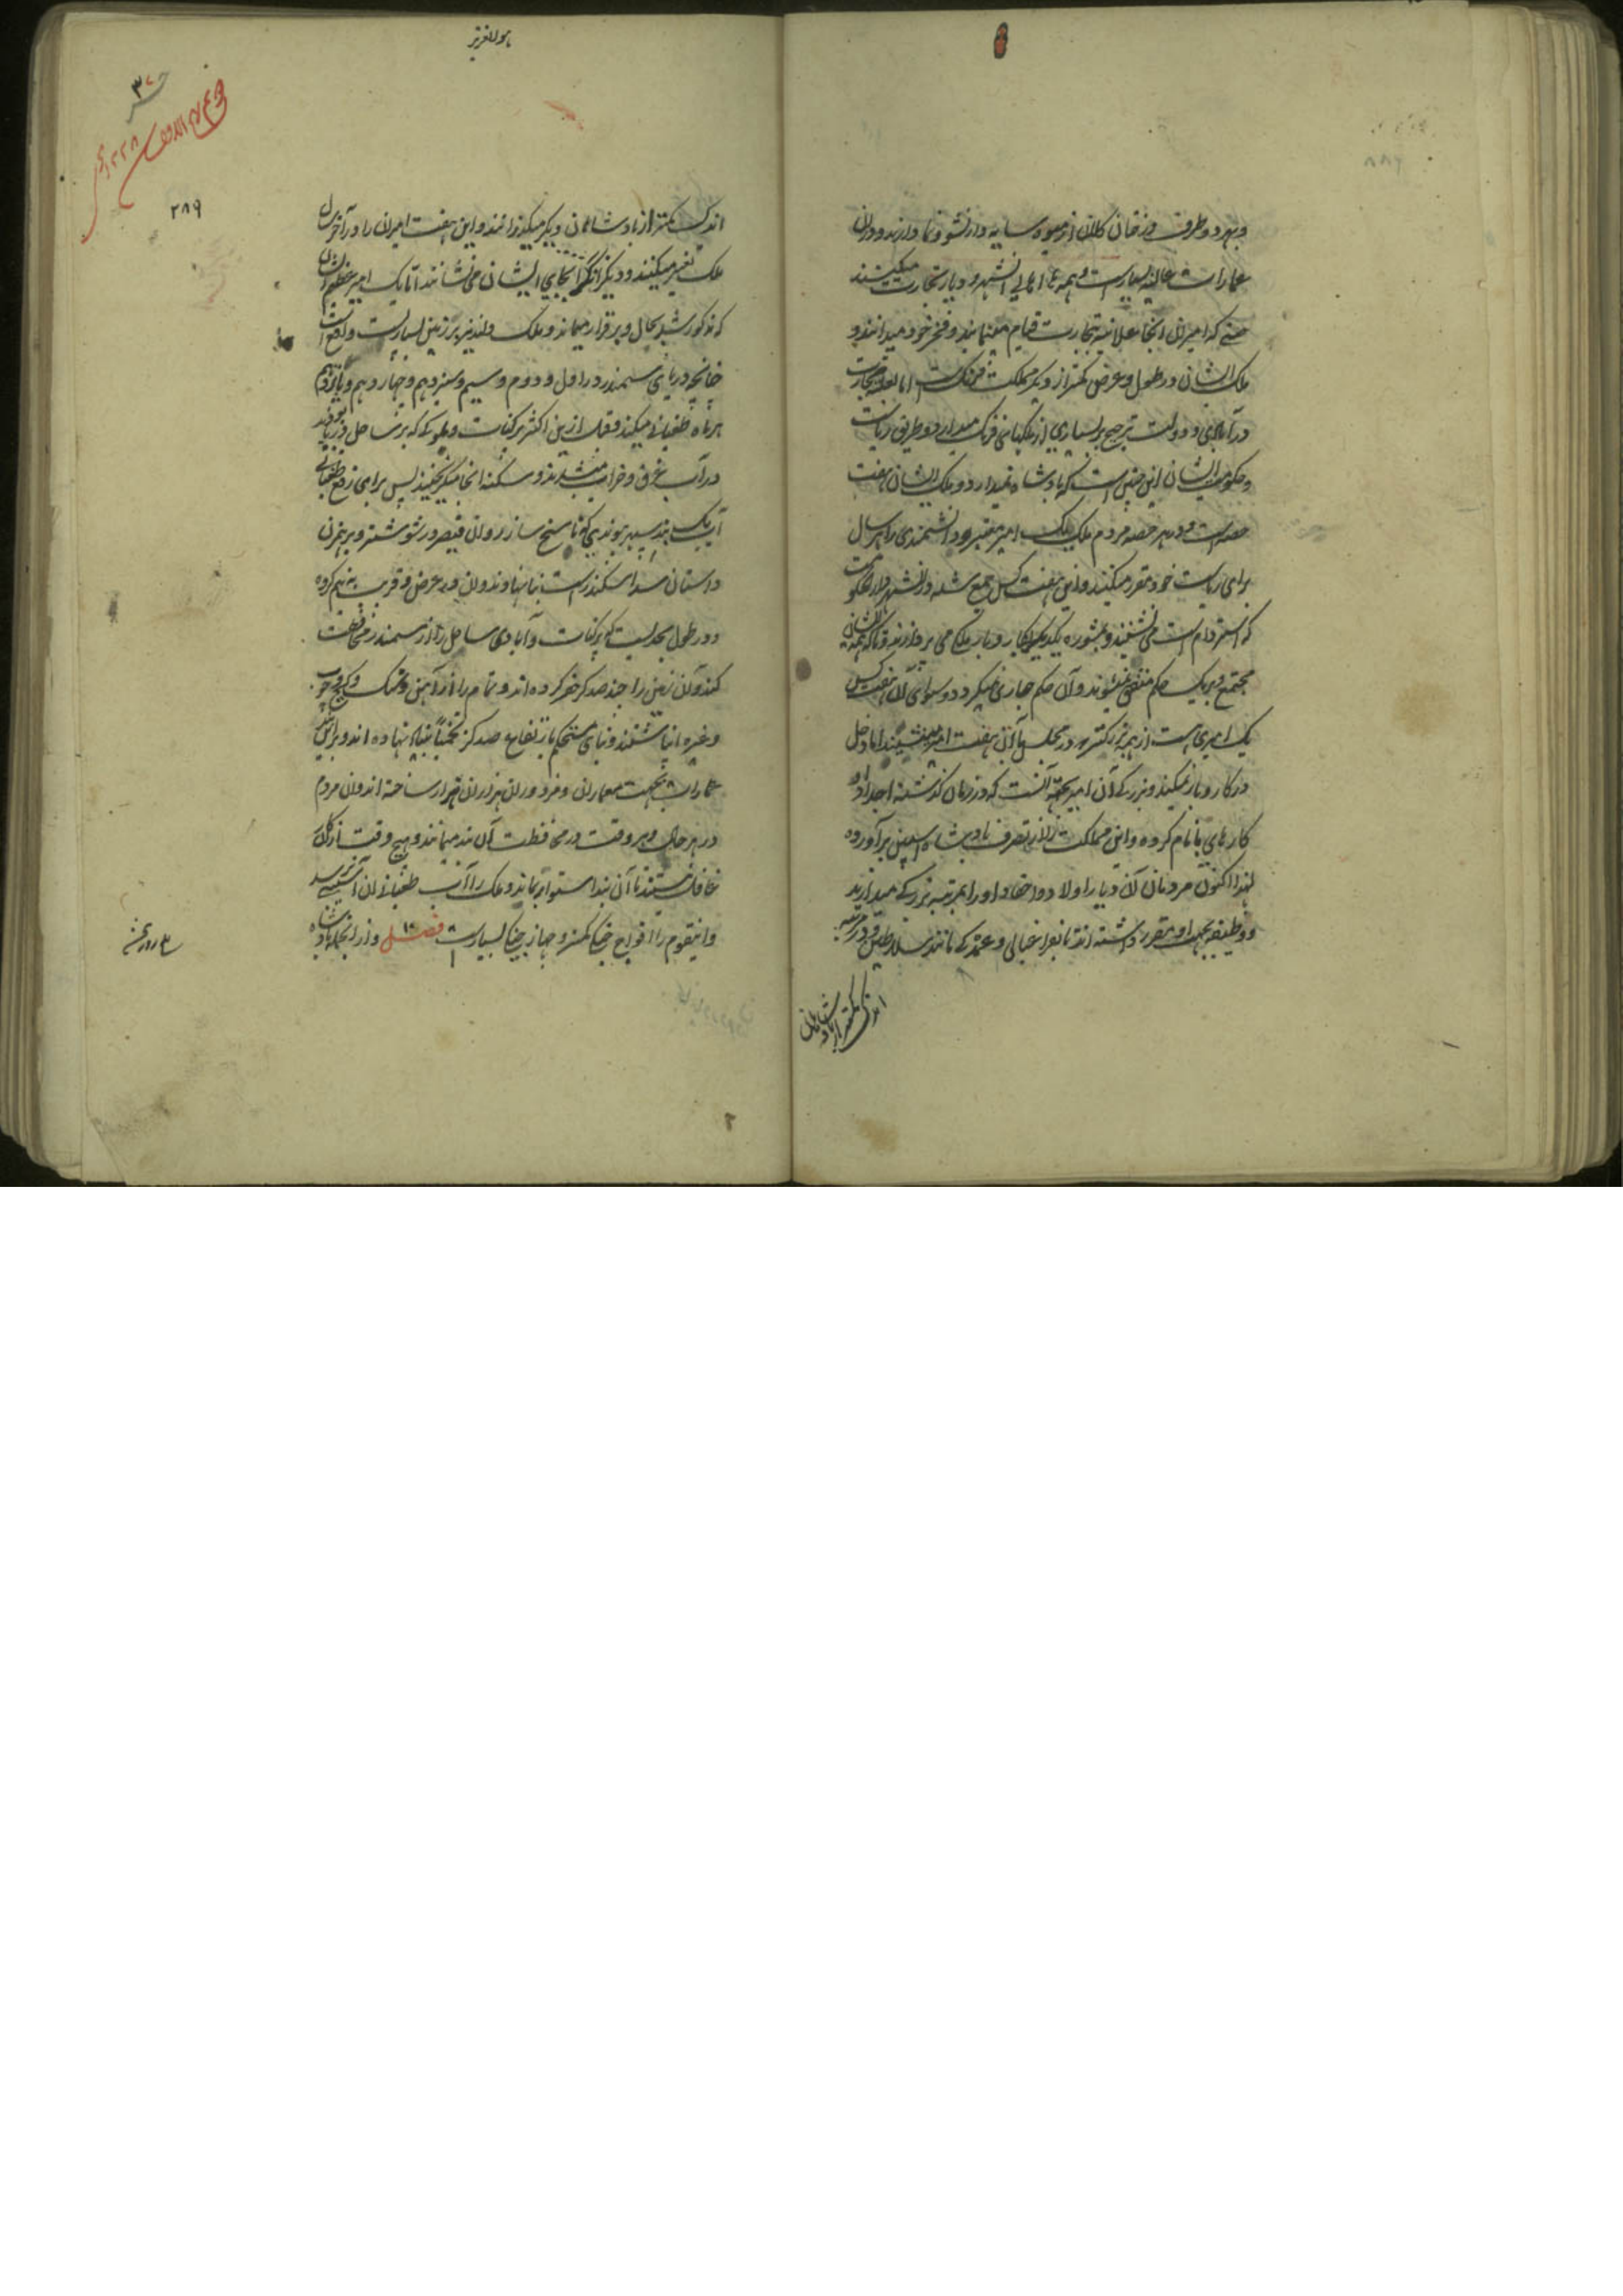 و بهر دو طرف درختان کلان از میوه و سایه دار نشو و نما دارند و در ان
عمارات عالیه بسیار است و همه اهالی انشهر و دیار تجارت میکنند
حتی که امیران انجا علانیه بتجارت قیام مینمایند و فخر خود میدانند و
ملک ایشان در طول و عرض کمتر از دیگر مملکت فرنگ است اما تجارت
در آبادی و دولت ترجیح بر بسیاری از ملکهای فرنگ میدارد و طریق ریاست
و حکومت ایشان این چنین است که پادشاه نمیدارد و ملک ایشان هفت
حصه است و در هر حصه مردم ملک یک امیر معتبر و دانشمندی را هر سال
برای ریاست خود مقرر میکنند و این هفت کس جمع شده در شهر دار الحکومت
که استردام است می نشینند و بمشوره یکدیگر بکار و بار ملک می پردازند و تا که همه ایشان
مجتمع و بر یک حکم متفق نمیشوند آن حکم جاری نمیگردد و سوای آن هفت کس
یک امیری است از همه بزرگتر و در مجلس با آن هفت امیر می نشیند اما دخل
در کار و بار نمیکند و بزرگی آن امیر بجهة آنست که در زمان گذشته اجداد او
کارهای با نام کرده و این مملکت را از تصرف پادشاه اسپین برآورده
لهذا اکنون مردمان آن دیار اولاد و احفاد او را بمرتبه بزرگی میدارند
و وظیفه بجهة او مقرر داشته اند تا بفراغبالی و عمدگی مانند سلاطین و در مرتبه
اندکی کمتر از پادشاهان
هو العزیز
۳۷
۲۸۹
اندکی کمتر از پادشاهان دیگر میگذرانند و این هفت امیران را در آخر سال
ملک تغییر میکنند و دیگران را بجای ایشان می نشانند اما یک امیر عظیم الشان
که مذکور شد بحال و برقرار میماند و ملک ولندیز بر زمین بسیار پست واقع است
چنانچه دریای سمندر در اول و دوم و سیم و سیزدهم و چهاردهم و پانزدهم
هر ماه طغیانی میکند و قبل ازین اکثر پرگنات و ملوکه که بر ساحل دریا بودند
در آب غرق و خراب میشدند و سکنه انجا میگریختند پس برای رفع طغیانی
آب یک بند سپهر پیوندی که ناسخ ساز روان قیصر در شوشتر و برهمزن
داستان سد اسکندر است بنا نهادند و ان در عرض قریب به نیم کروه
و در طول بحدیست که پرگنات و آبادی ساحل را از سمندر محافظت
کند و آن زمین را چند صد گز حفر کرده اند و تمام را از آهن و سنگ و گچ و چوب
و غیره انباشتند و بنای مستحکم بارتفاع صد گز تخمیناً بنیاد نهاده اند و بر این
عمارات بجهت معماران و مزدوران هزاران هزار ساخته اند و ان مردم
در هر حال و هر وقت در محافظت آن بند میمانند و هیچ وقت از آن
غافل نیستند تا آن بند استوار بماند و ملک را آب طغیان ان آسیبی نرسد
و اینقوم را افواج جنگی کمتر و جهاز جنگی بسیار است فصل ۱۰ و از انجمله پادشاه